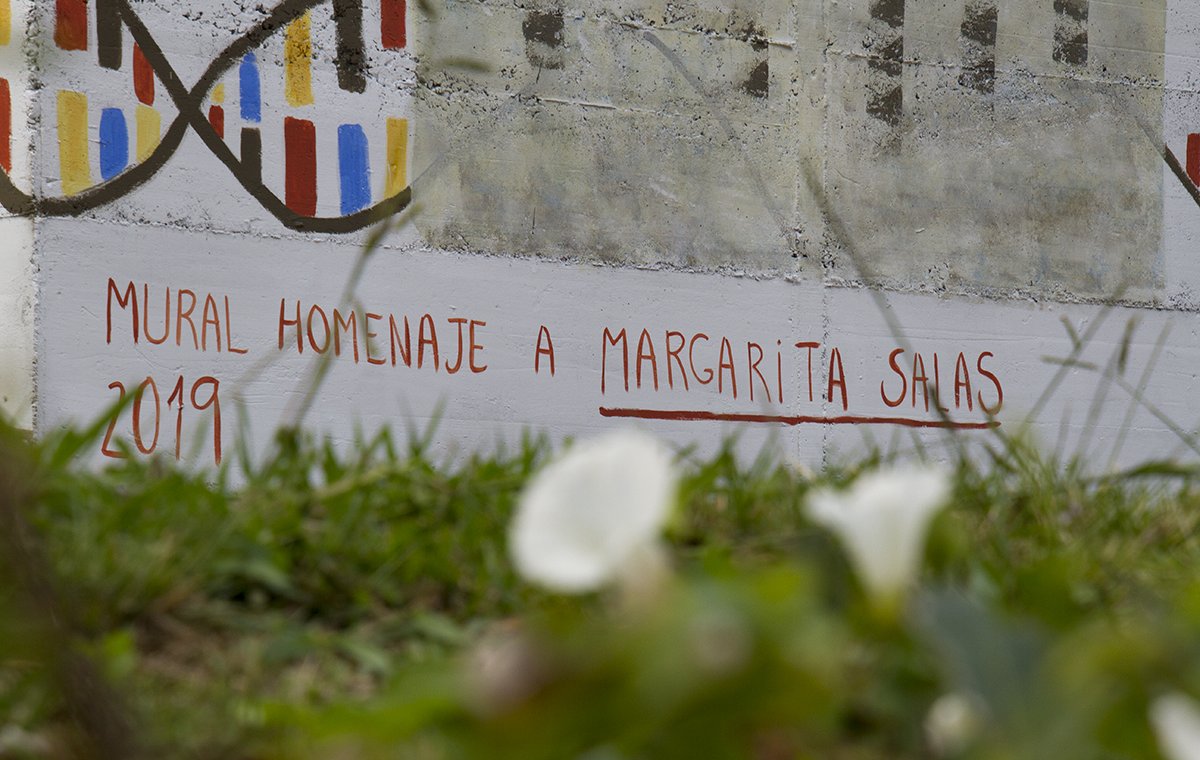 MURAL HOMENAJE A MARGARITA SALAS
2019